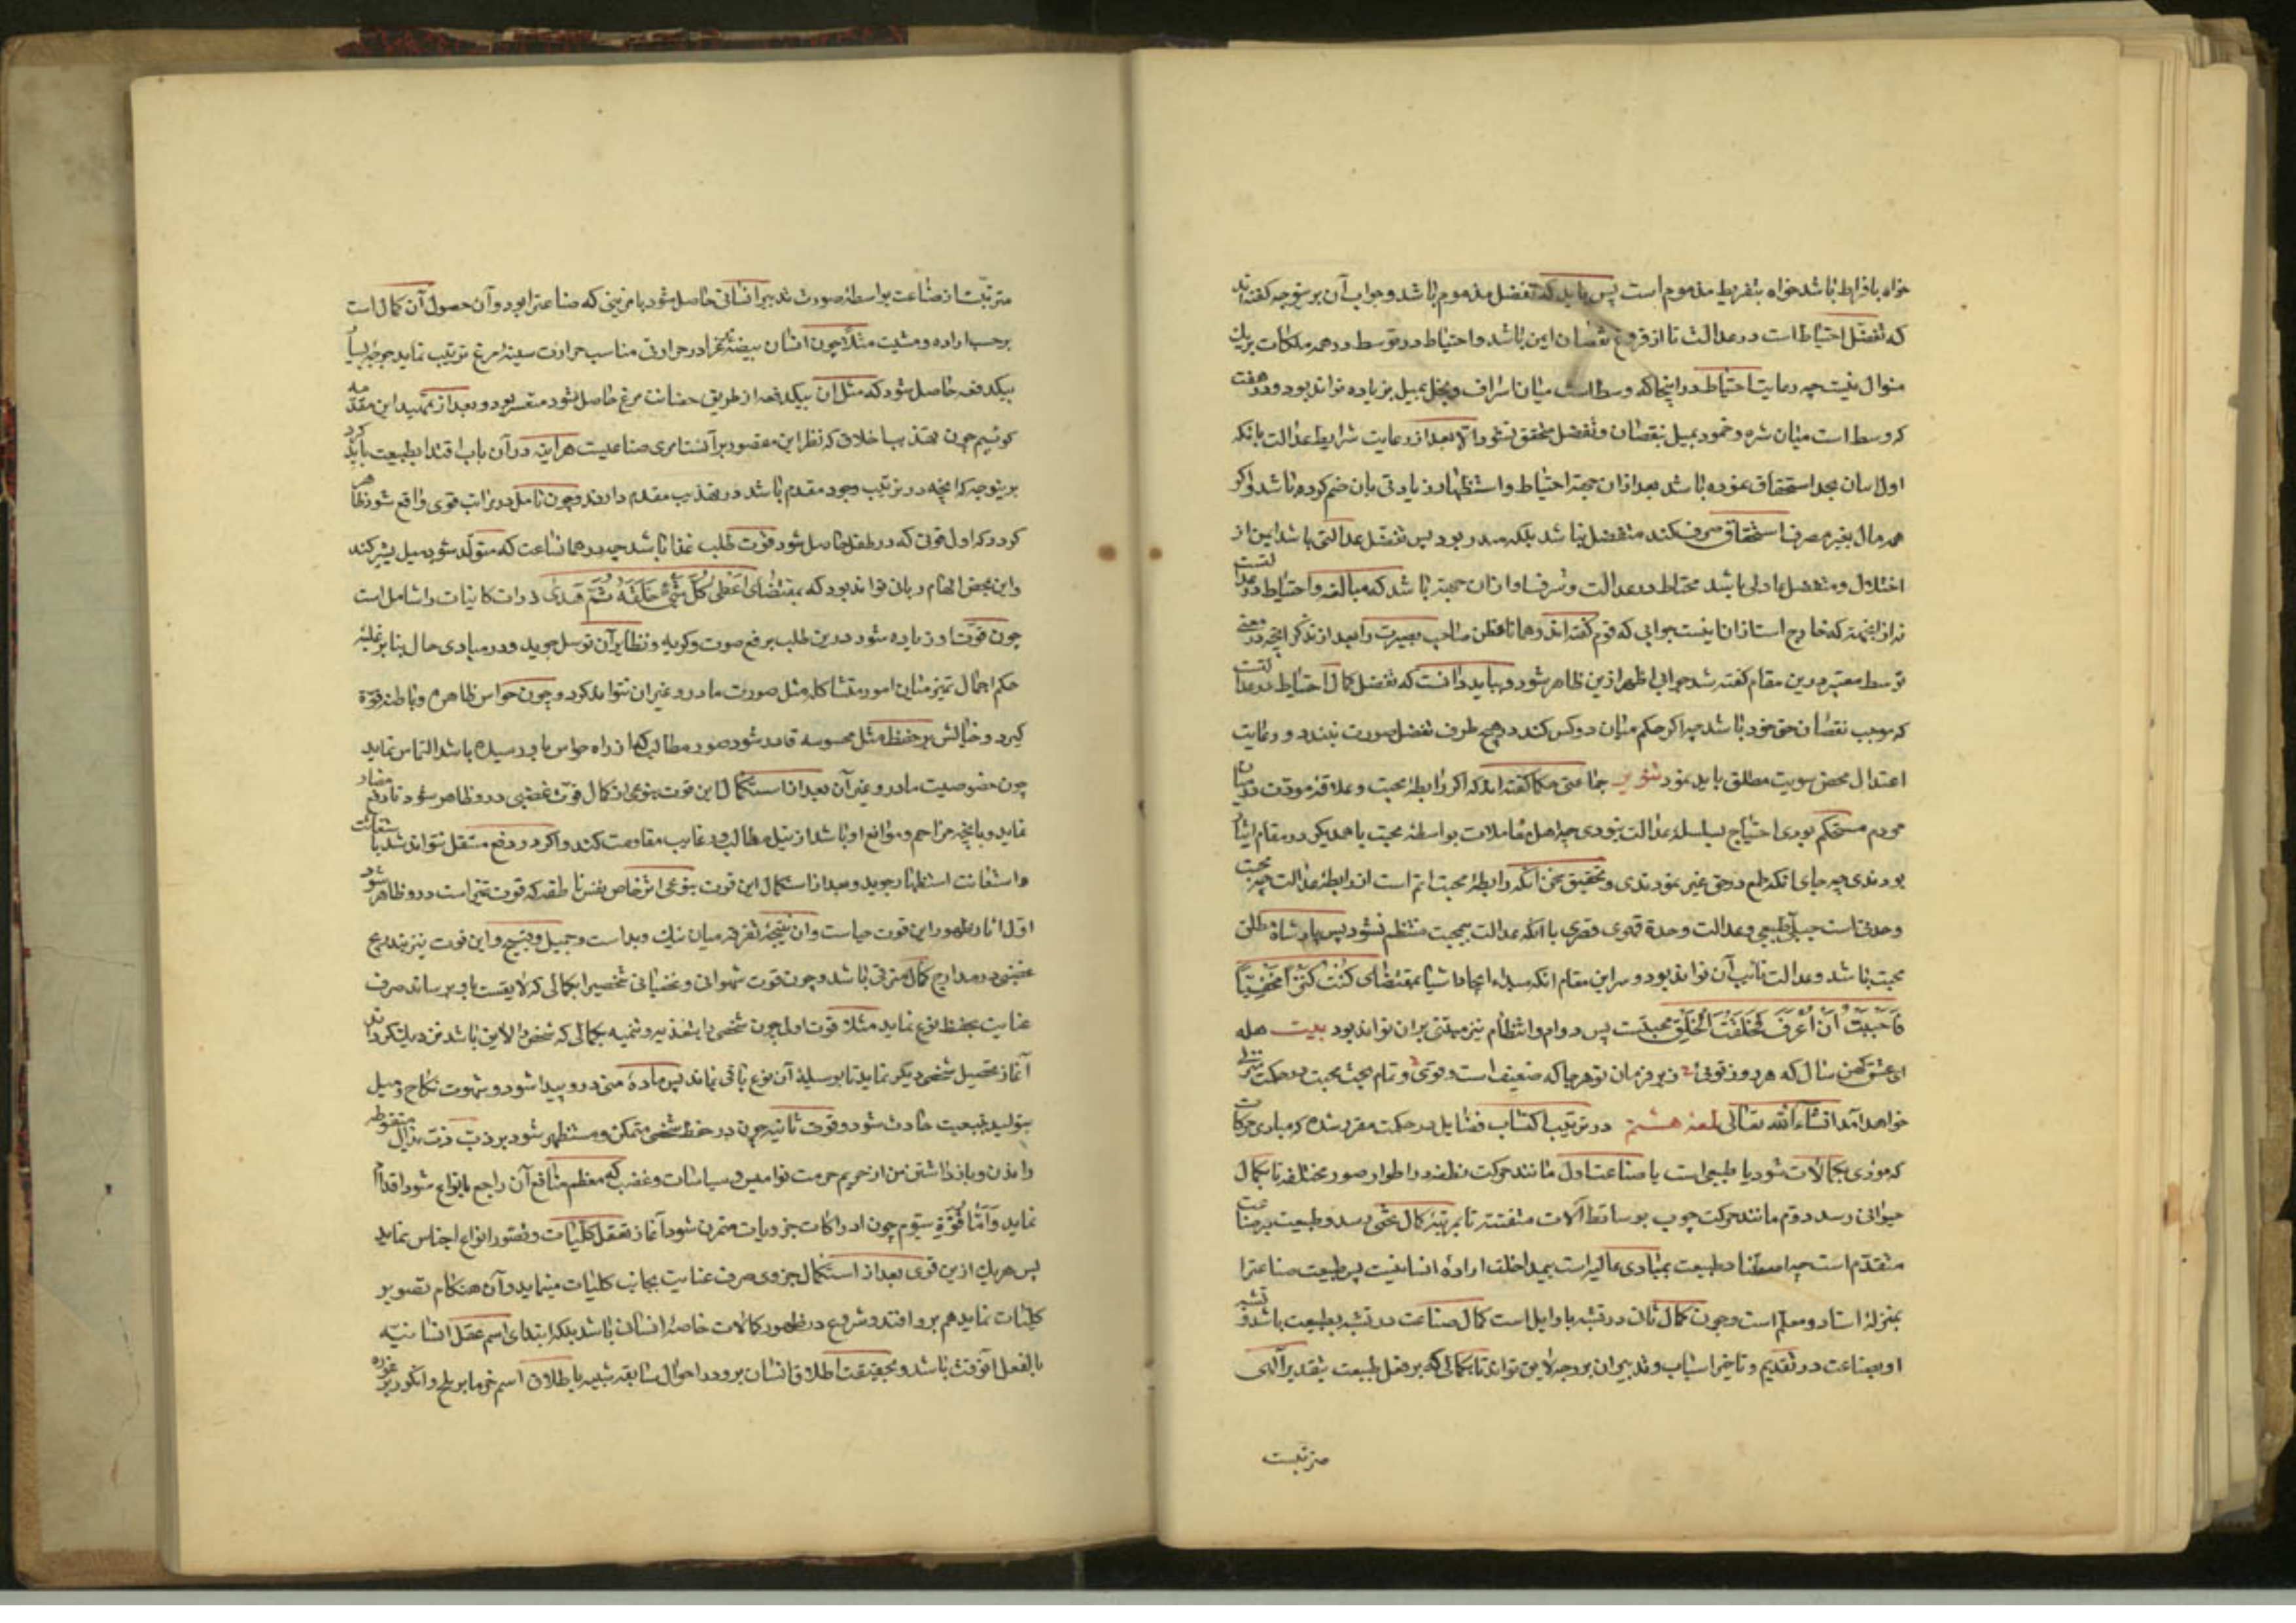 خواه بافراط باشد خواه بتفریط مذموم است پس باید که تفضل مذموم باشد و جواب آن برینوجه گفته‌اند
که تفضل احتیاط است در عدالت تا از وقوع نقصان ایمن باشد و احتیاط در توسط در همه ملکات بریک
منوال نیست چه رعایت احتیاط در اینجا که وسط است میان اسراف و بخل بمیل بزیاده تواند بود و در عفت
که وسط است میان شره و خمود بمیل بنقصان و تفضل متحقق نشود الا بعد از رعایت شرایط عدالت بانکه
اولا بدان بحد استحقاق نموده باشد بعد ازان جهة احتیاط و استظهار زیادتی بان ضم کرده باشد و اکر
همه مال بغیر مصرف استحقاق صرف کند متفضل نباشد بلکه مبذر بود پس تفضل عدالتی باشد ایمن از
اختلال و متفضل عادلی باشد محتاط در عدالت و شرف او ازان جهة باشد که مبالغه و احتیاط در عدالتست
نه از انجهة که خارج است ازان اینست جوابی که قوم گفته‌اند و همانا فطن صاحب بصیرت را بعد از تذکر انچه در معنی
توسط معتبر درین مقام گفته شد جوابی اظهر ازین ظاهر شود و بباید دانست که تفضل کمال احتیاط در عدالتست
که موجب نقصان حق خود باشد چه اکر حکم میان دو کس کند در هیچ طرف تفضل صورت نبندد و رعایت
اعتدال محض سویت مطلق باید نمود تنویر جماعتی حکما گفته‌اند که اکر رابطهٔ محبت و علاقهٔ مودت در میان
مردم مستحکم بودی احتیاج بسلسلهٔ عدالت نبودی چه اهل معاملات بواسطهٔ محبت باهمدیکر در مقام ایثار
بودندی چه جای انکه طمع در حق غیر نمودندی و تحقیق سخن انکه رابطهٔ محبت اتم است از رابطهٔ عدالت چه محبت
وحدتست جبلی طبیعی و عدالت وحدة قهری قسری با انکه عدالت بیمحبت منتظم نشود پس پادشاه مطلق
محبت باشد و عدالت نایب آن تواند بود و سر این مقام انکه مبدء ایجاد اشیا بمقتضای کُنْتُ کَنْزاً مَخْفِیّاً
فَاَحْبَبْتُ اَنْ اُعْرَفَ فَخَلَقْتُ الْخَلْقَ محبتست پس دوام و انتظام نیز مبتنی بران تواند بود بیت هله
ای عشق کهن سال که هر روز نوئی زیر فرمان تو هر جا که ضعیف است و قوی و تمام بحث محبت در حکمت منزلی
خواهد آمد انشاءالله تعالی لمعهٔ هشتم در ترتیب اکتساب فضایل در حکمت مقرر شده که مبادی حرکات
که مؤدی بکمالات شود یا طبیعی است یا صناعت اول مانند حرکت نطفه در اطوار صور مختلفه تا بکمال
حیوانی رسد دوم مانند حرکت چوب بوساطت آلات متفننه تا بمرتبهٔ کمال تختی رسد و طبیعت بر صناعت
متقدم است چه استناد طبیعت بمبادی عالیه است بیمداخلت ارادهٔ انسانیت پس طبیعت صناعترا
بمنزلهٔ استاد و معلم است و چون کمال ثانی در تشبه باوایل است کمال صناعت در تشبه بطبیعت باشد و تشبه
او بصناعت در تقدیم و تاخیر اسباب و تدبیر ان بر وجه لایق تواند تا بکمالی که بر فعل طبیعت بتقدیر الهی
مترتبست
مترتبست از صناعت بواسطهٔ صورت تدبیر انسانی حاصل شود با مزیتی که صناعترا بود و آن حصول آن کمال است
برحسب اراده و مشیت مثلا چون انسان بیضهٔ مرغ را در حرارتی مناسب حرارت سینهٔ مرغ تربیت نماید جوجهٔ بسیار
بیکدفعه حاصل شود که مثل ان بیکدفعه از طریق حضانت مرغ حاصل شود متعسر بود و بعد از تمهید این مقدمه
کوئیم چون تهذیب اخلاق که نظر این مقصور بر آنست امری صناعیست هر اینه در آن باب اقتدا بطبیعت باید کرد
برینوجه که انچه در ترتیب وجود مقدم باشد در تهذیب مقدم دارند و چون تامل در مراتب قوی واقع شود ظاهر
کردد که اول قوتی که در طفل حاصل شود قوت طلب غذا باشد چه در همان ساعت که متولد شود میل بشیر کند
و این محض الهام ربانی تواند بود که بمقتضای اَعْطٰی کُلَّ شَیْءٍ خَلْقَهُ ثُمَّ هَدٰی ذرات کاینات را شامل است
چون قوت او زیاده شود درین طلب برفع صوت و کریه و نظایر آن توسل جوید و در مبادی حال بنا بر غلبهٔ
حکم اجمال تمیز میان امور متشاکله مثل صورت مادر و غیر ان نتواند کرد و چون حواس ظاهره و باطنه قوة
کیرد و خیالش بر حفظ مثل محسوسه قادر شود صور مطالبی که از راه حواس باو رسیده باشد التماس نماید
چون خصوصیت مادر و غیر آن بعد از استکمال این قوت بنوعی از کمال قوت غضبی در و ظاهر شود تا دفع مضار
نماید و با انچه مزاحم و موانع او باشد از نیل مطالب و رغایب مقاومت کند و اکر در دفع مستقل نتواند شد باستغاثت
و استعانت استظهار جوید و بعد از استکمال این قوت بنوعی اثر خاص نفس ناطقه که قوت تمیز است در و ظاهر شود
اول آثار ظهور این قوت حیاست و ان نتیجهٔ تفرقه میان نیک و بد است و جمیل و قبیح و این قوت نیز بتدریج
در مدارج کمال مترقی باشد و چون قوت شهوانی و غضبانی شخصرا بکمالی که لایقست باو برساند صرف
عنایت بحفظ نوع نماید مثلا قوت اول چون شخص را بتغذیه و تنمیه بکمالی که شخص را لایق باشد نزدیک کرداند
آغاز تحصیل شخصی دیکر نماید تا بوسیلهٔ آن نوع باقی نماند پس مادهٔ منی در و پیدا شود و شهوت نکاح و میل
بتولید بتبعیت حادث شود و قوت ثانیه چون در حفظ شخص متمکن و مستظهر شود بر ذب
و باز داشتن از حریم حرمت نوامیس و سیاسات و غضب که معظم منافع آن راجع بانواع شود اقدام
نماید وَاَمّا قُوّة سیّوم چون ادراکات جزویات متمرن شود آغاز تعقل کلیات و تصور انواع اجناس نماید
پس هریک ازین قوی بعد از استکمال جزوی صرف عنایت بجانب کلیات مینماید و آن هنکام تصویر
کلیات نماید هم برو افتد و شروع در ظهور کمالات خاصهٔ انسان باشد بلکه ابتدای اسم عقل انسانیه
بالفعل آنوقت باشد و بحقیقت اطلاق انسان برو در احوال سابقه شبیه باطلاق اسم خرما بر بلح و انکور بر غوره